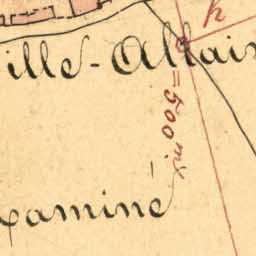 h
ille-Allais
=500 m.
xaminé